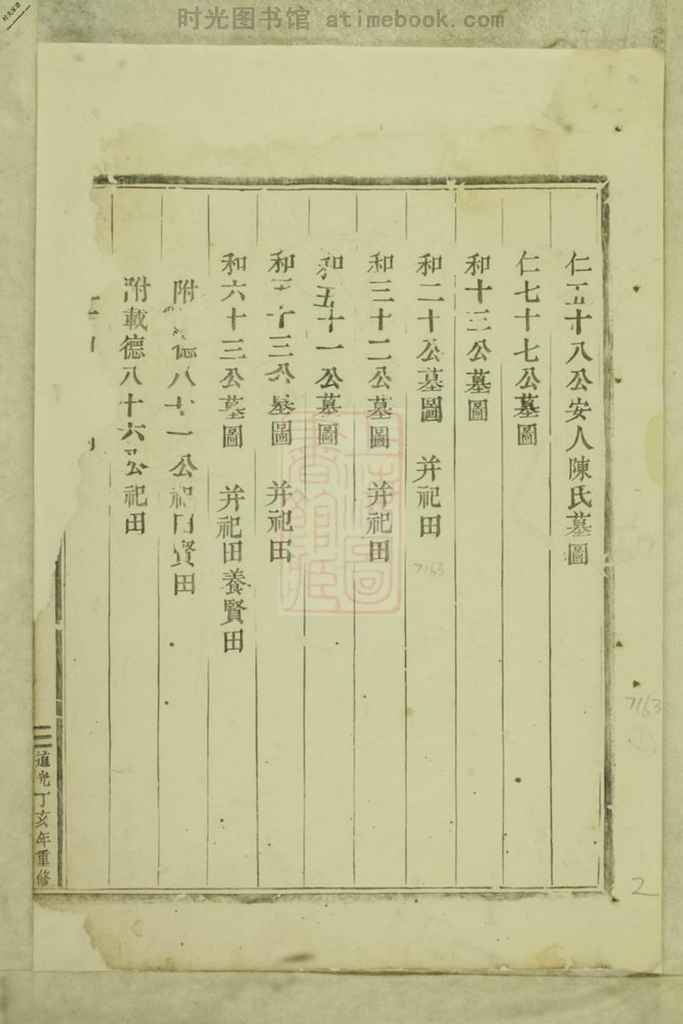 时光图书馆 atimebook.com
仁五十八公安人陳氏墓圖
仁七十七公墓圖
和十三公墓圖
和二十公墓圖 并祀田
和三十二公墓圖 并祀田
和五十一公墓圖
和五十三公墓圖 并祀田
和六十三公墓圖 并祀田養賢田
附 德八十一公祀田賢田
附載德八十六公祀田
道光丁亥年重修
7163
7163
2